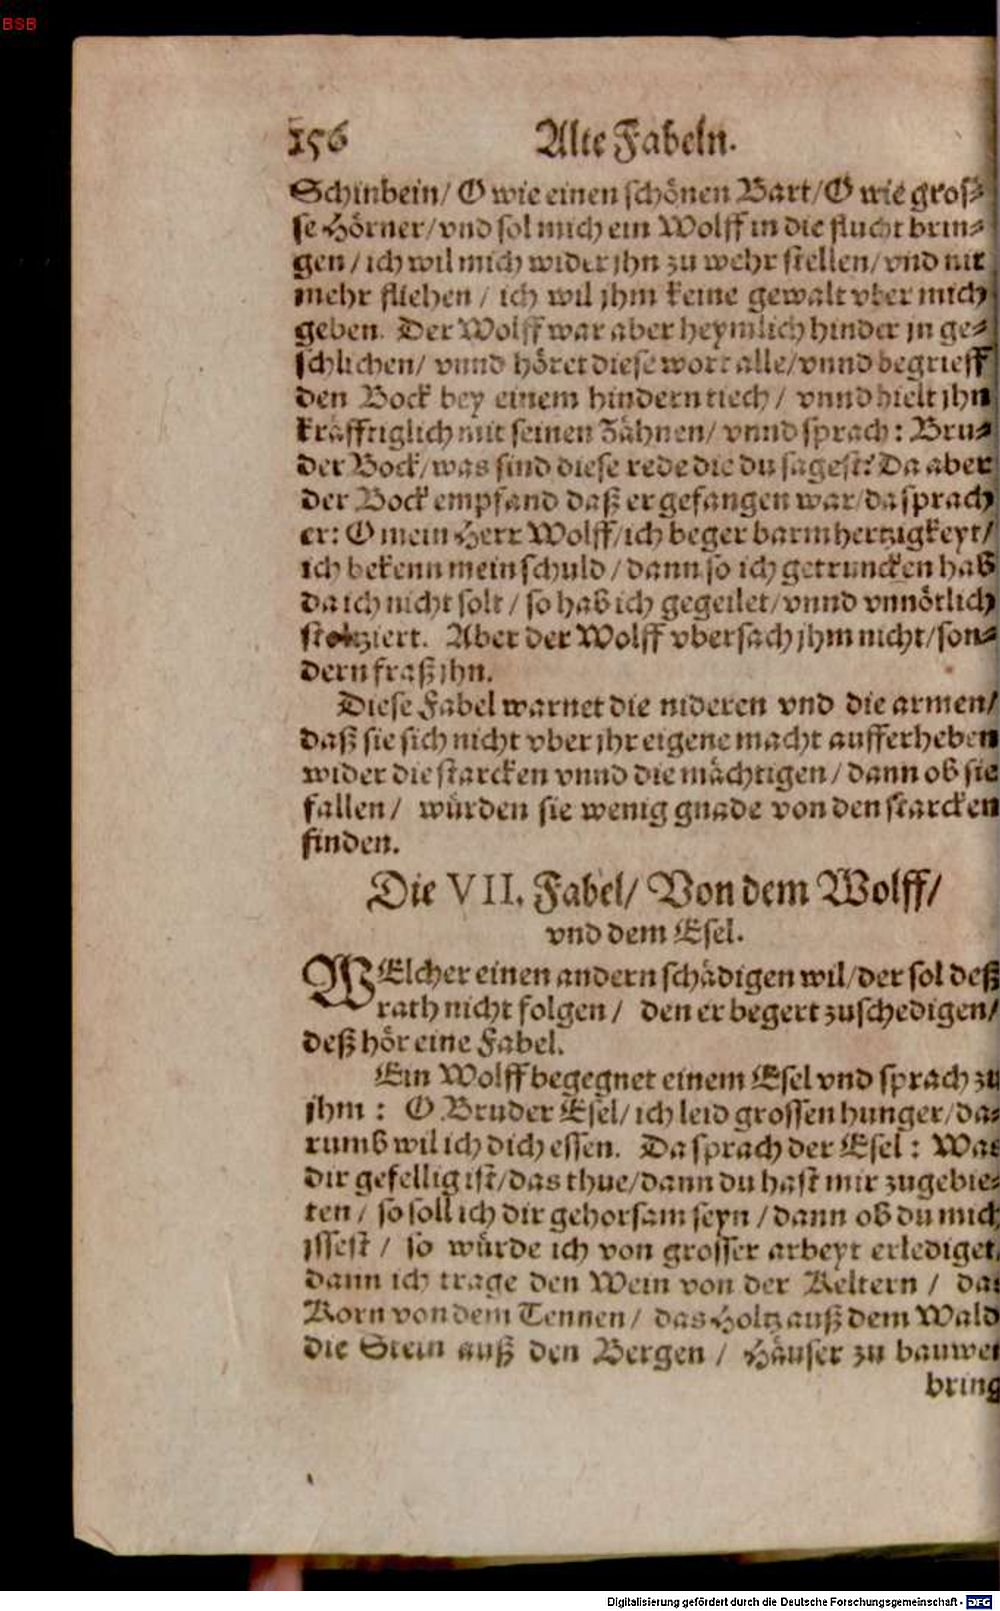 BSB
156 Alte Fabeln.
Schinbein/ O wie einen schönen Bart/ O wie gros⸗
se Hörner/ vnd sol mich ein Wolff in die flucht brin⸗
gen / ich wil mich wider jhn zu wehr stellen/ vnd nit
mehr fliehen / ich wil jhm keine gewalt vber mich
geben. Der Wolff war aber heymlich hinder jn ge⸗
schlichen/ vnnd höret diese wort alle/ vnnd begrieff
den Bock bey einem hindern riech / vnnd hielt jhn
kräfftiglich mit seinen Zähnen/ vnnd sprach: Bru⸗
der Bock/ was sind diese rede die du sagest? Da aber
der Bock empfand daß er gefangen war/ da sprach
er: O mein Herr Wolff/ ich beger barmhertzigkeyt/
ich bekenn mein schuld / dann so ich getruncken hab
da ich nicht solt / so hab ich gegeilet/ vnnd vnnötlich
stoltziert. Aber der Wolff vbersach jhm nicht/ son⸗
dern fraß jhn.
Diese Fabel warnet die nideren vnd die armen/
daß sie sich nicht vber jhr eigene macht aufferheben
wider die starcken vnnd die mächtigen / dann ob sie
fallen / würden sie wenig gnade von den starcken
finden.
Die VII. Fabel/ Von dem Wolff/
vnd dem Esel.
WElcher einen andern schädigen wil/ der sol deß
rath nicht folgen / den er begert zuschedigen/
deß hör eine Fabel.
Ein Wolff begegnet einem Esel vnd sprach zu
jhm : O Bruder Esel/ ich leid grossen hunger/ da⸗
rumb wil ich dich essen. Da sprach der Esel : Was
dir gefellig ist/ das thue/ dann du hast mir zugebie⸗
ten / so soll ich dir gehorsam seyn / dann ob du mich
jssest / so würde ich von grosser arbeyt erlediget
dann ich trage den Wein von der Keltern / das
Korn von dem Tennen / das Holtz auß dem Wald
die Stein auß den Bergen / Häuser zu bauwen
bring
Digitalisierung gefördert durch die Deutsche Forschungsgemeinschaft - DFG